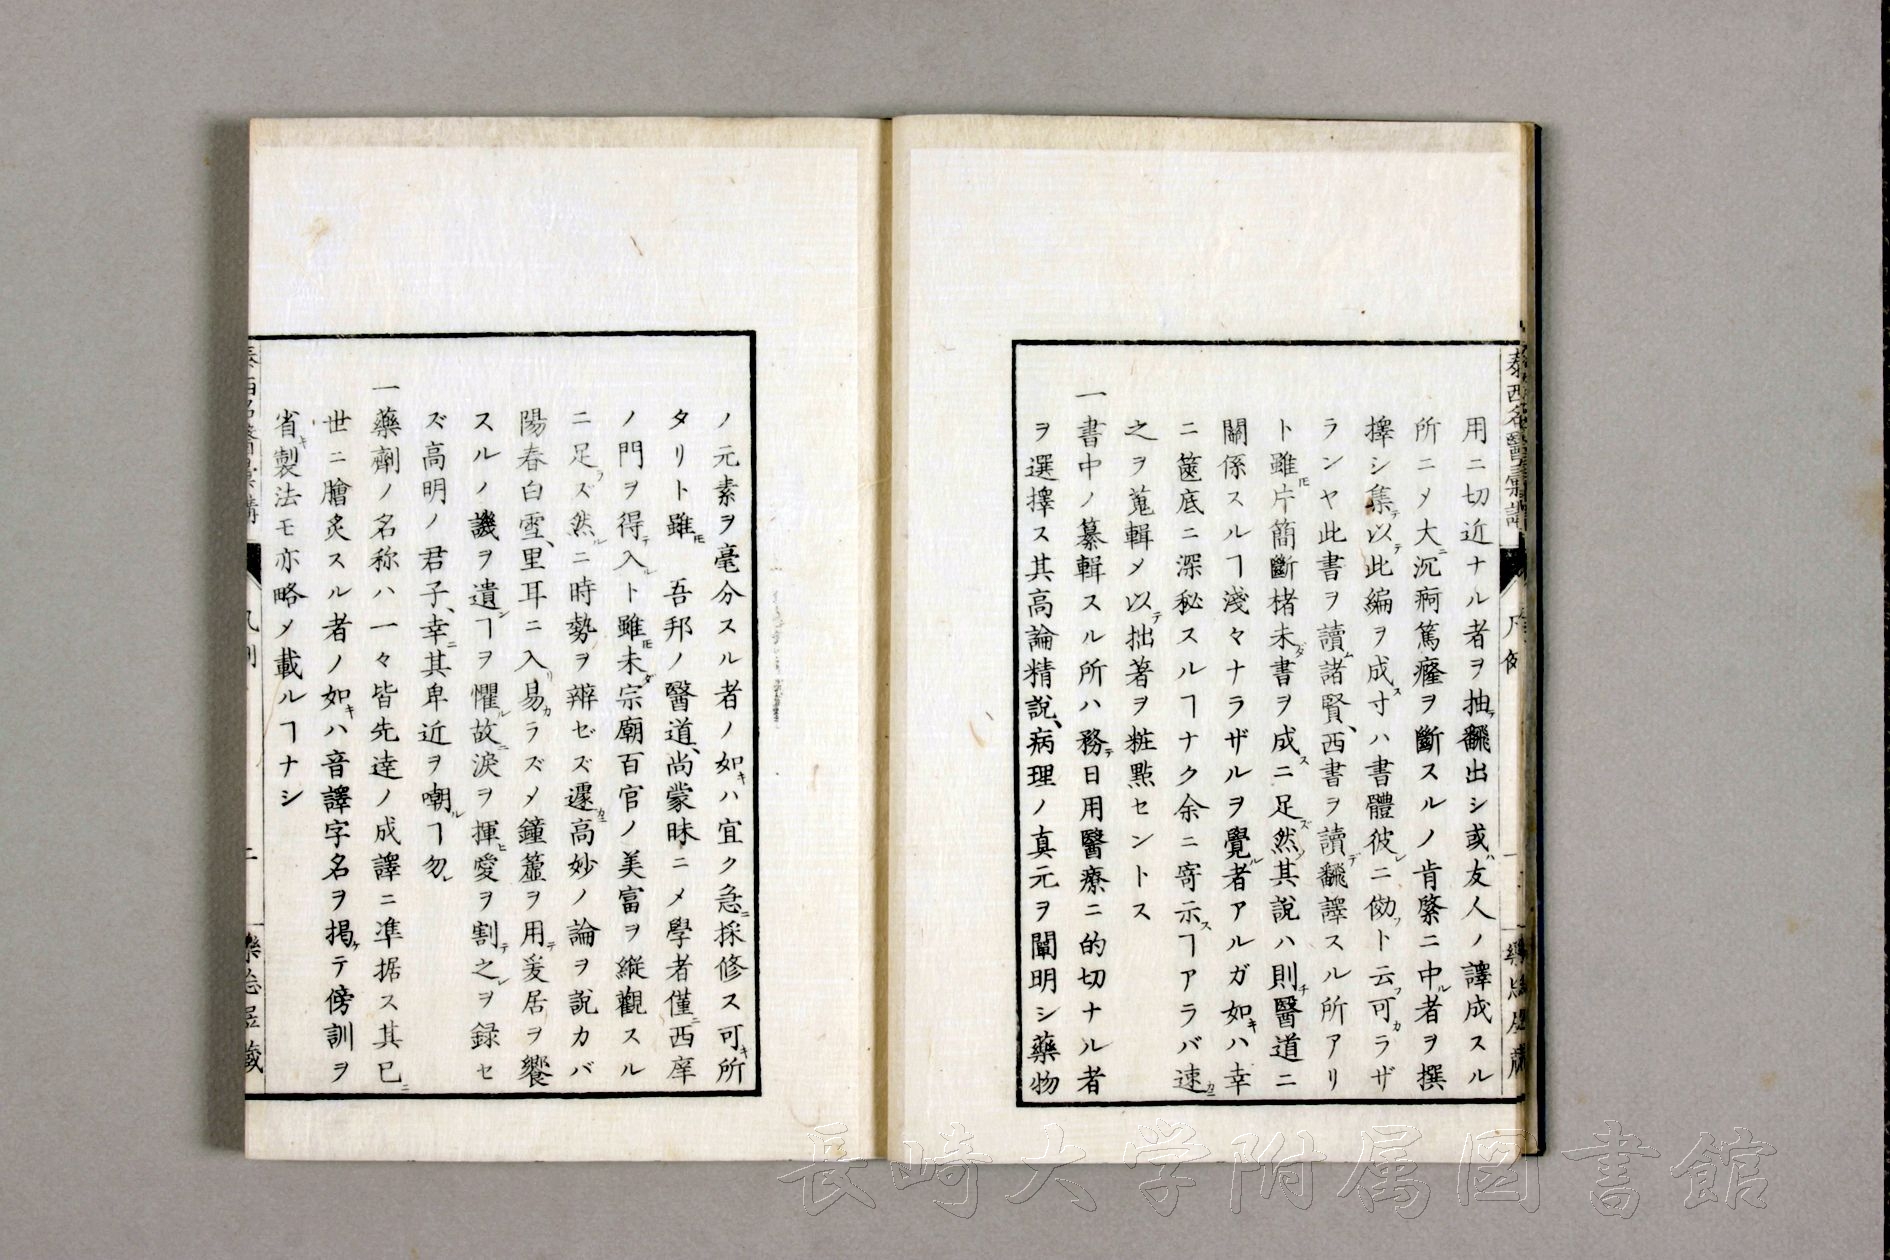 泰西名醫彙講
凡例
用ニ切近ナル者ヲ抽飜出シ或ハ友人ノ譯成スル
所ニメ大ニ沉痾篤癃ヲ斷スルノ肯綮ニ中ル者ヲ撰
擇シ集テ以テ此編ヲ成ス寸ハ書體彼レニ傚フト云フ可カラザ
ランヤ此書ヲ讀ム諸賢、西書ヲ讀デ飜譯スル所アリ
ト雖𪜈片簡斷楮未ダ書ヲ成スニ足ズ然ノ其説ハ則チ醫道ニ
關係スルヿ淺々ナラザルヲ覺ル者アルガ如キハ幸
ニ篋底ニ深秘スルヿナク余ニ寄示スヿアラバ速カニ
之ヲ蒐輯メ以テ拙著ヲ粧點セントス
一書中ノ纂輯スル所ハ務テ日用醫療ニ的切ナル者
ヲ選擇ス其高論精説、病理ノ真元ヲ闡明シ藥物
ノ元素ヲ毫分スル者ノ如キハ宜ク急ニ採修ス可キ所
タリト雖𪜈 吾邦ノ醫道、尚蒙昧ニメ學者僅ニ西庠
ノ門ヲ得テ入ルト雖𪜈未ダ宗廟百官ノ美富ヲ縱觀スル
ニ足ラズ然ルニ時勢ヲ辨ゼズ遽カニ高妙ノ論ヲ説カバ
陽春白雪、里耳ニ入リ易カラズメ鐘簴ヲ用テ爰居ヲ饗
スルノ譏ヲ遺シヿヲ懼ル故ニ淚ヲ揮ヒ愛ヲ割テ之レヲ録セ
ズ高明ノ君子、幸ニ其卑近ヲ嘲ルヿ勿レ
一藥劑ノ名称ハ一々皆先逹ノ成譯ニ準据ス其已ニ
世ニ膾炙スル者ノ如キハ音譯字名ヲ掲ケテ傍訓ヲ
省キ製法モ亦略メ載ルヿナシ
長崎大学附属図書館